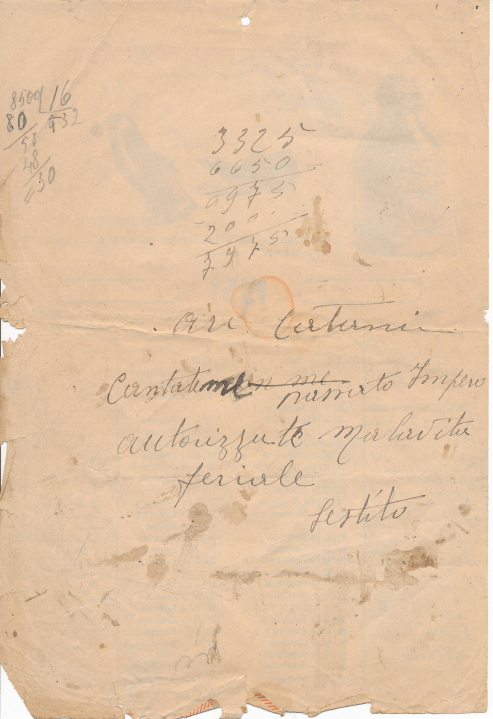 8509 16
80 532
50
48
30
3325
6650
0975
200
7975
Cantate me passato Impero
autorizzate Malavita
feriale
Sestito